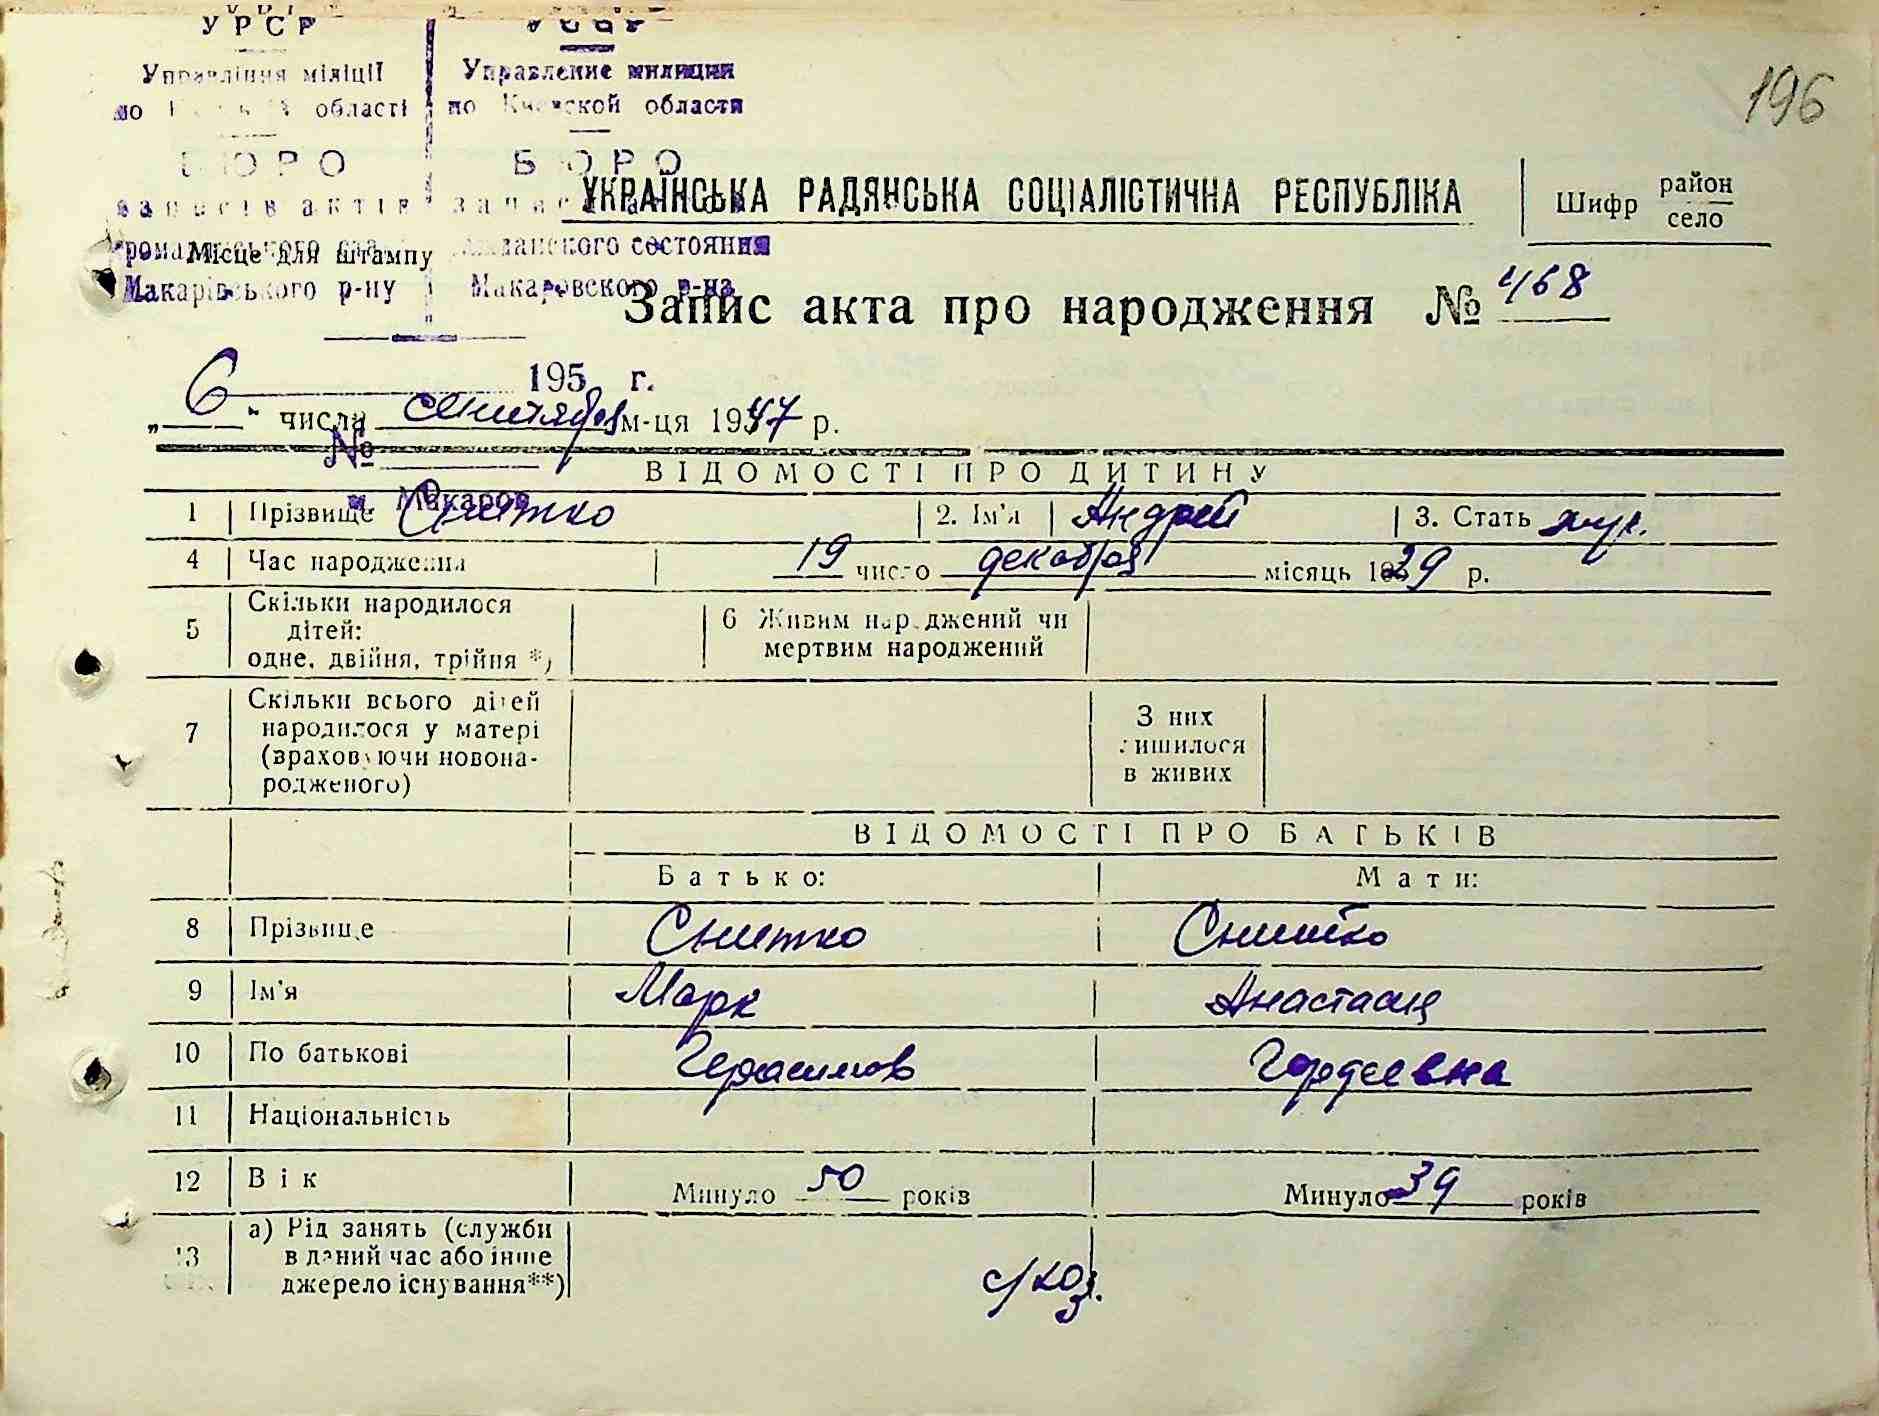 196
УРСР УССР
Управління міліції Управление милиции
по області по Киевской области
БЮРО БЮРО
записів актів
УКРАЇНСЬКА РАДЯНСЬКА СОЦІАЛІСТИЧНА РЕСПУБЛІКА
Шифр район
село
громадянського гражданского состояния
Місце для штампу
Макарівського р-ну Макаровского р-на
Запис акта про народження № 468
195 г.
„6“ числа сентября м-ця 1947 р.
№
м. Макаров
ВІДОМОСТІ ПРО ДИТИНУ
1 Прізвище Снитко 2. Ім'я Андрей 3. Стать муж.
4 Час народження 19 число декабря місяць 1929 р.
5 Скільки народилося
дітей:
одне, двійня, трійня *)
6 Живим народжений чи
мертвим народжений
7 Скільки всього дітей
народилося у матері
(враховуючи новона-
родженого)
З них
лишилося
в живих
ВІДОМОСТІ ПРО БАТЬКІВ
Батько: Мати:
8 Прізвище Снитко Снитко
9 Ім'я Марк Анастасия
10 По батькові Герасимов Гордеевна
11 Національність
12 Вік Минуло 50 років Минуло 39 років
13 а) Рід занять (служби
в даний час або інше
джерело існування**)
с/хоз.